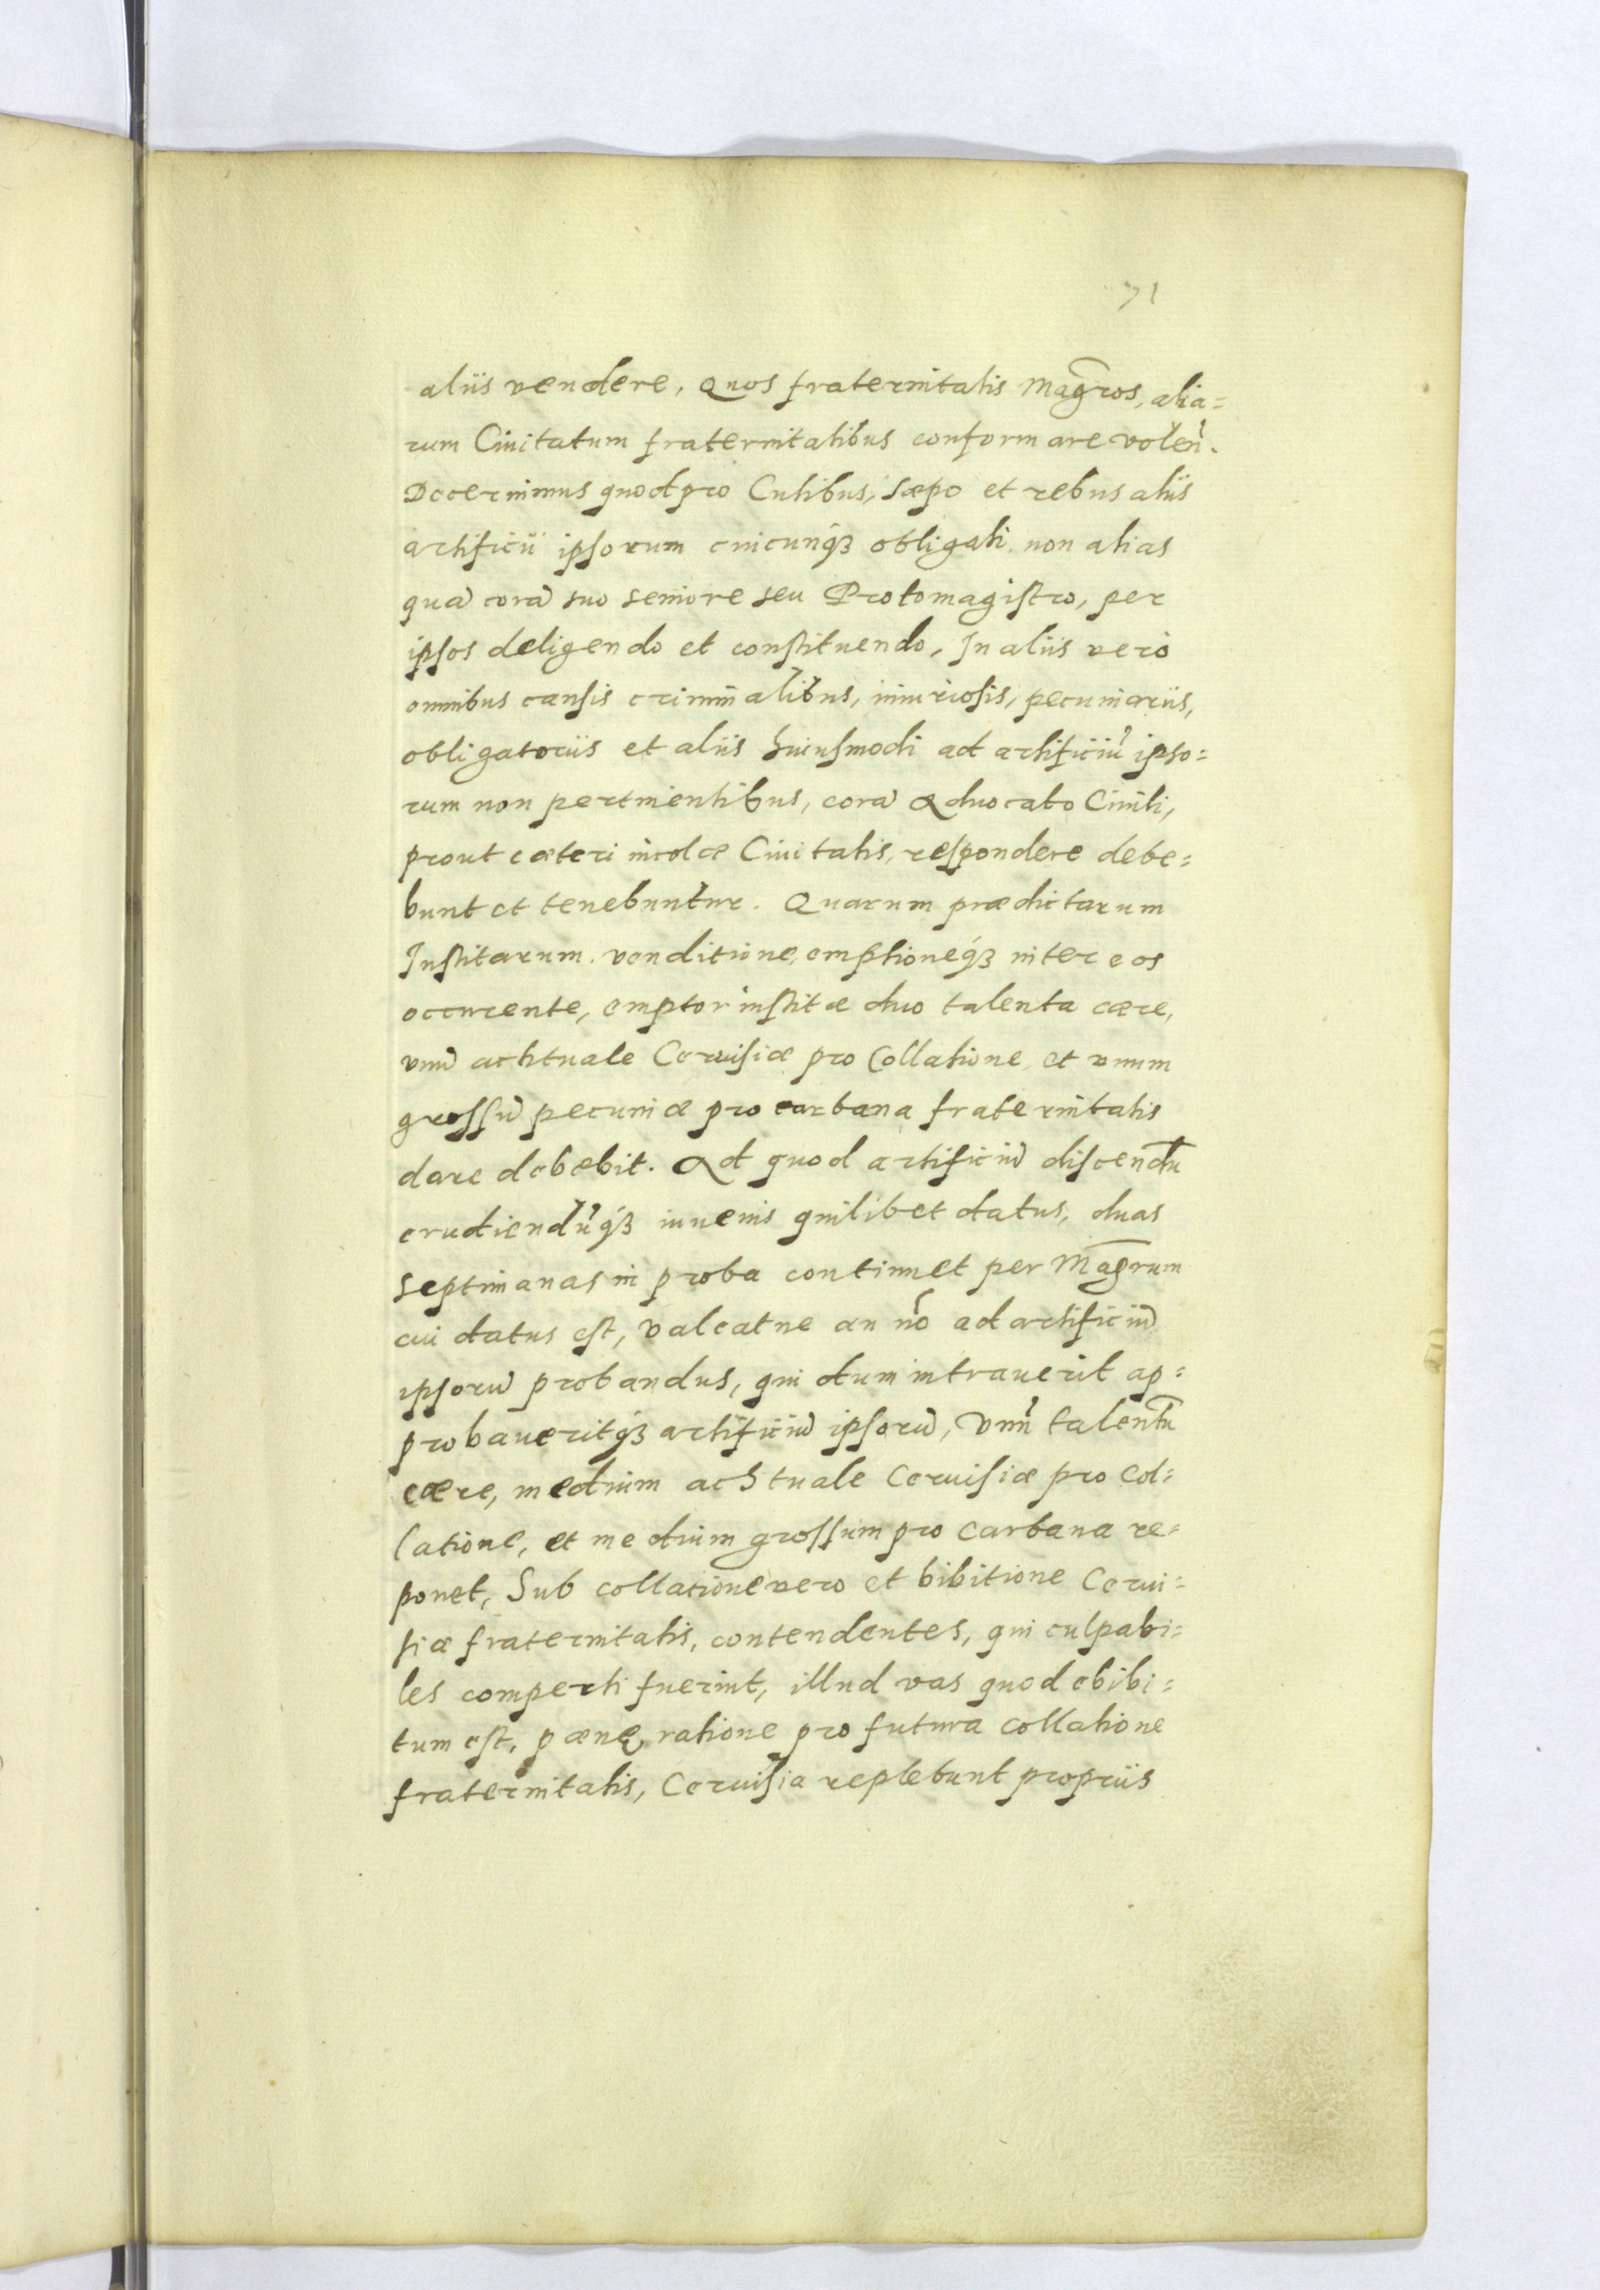 71
aliis vendere, Quos fraternitatis Magr̃os, alia=
rum Ciuitatum fraternitatibus conformare volen̄.
Decernimus quod pro Cutibus, sæpo et rebus aliis
artificii ipsorum cuicunqȝ obligati, non alias
quā corā suo seniore seu Protomagistro, per
ipsos deligendo et constituendo, In aliis vero
omnibus causis criminalibus, iniuriosis, pecuniariis,
obligatoriis et aliis huiusmodi ad artificiū ipso=
rum non pertinentibus, corā Aduocato Ciuili,
prout cæteri incolæ Ciuitatis, respondere debe=
bunt et tenebuntur. Quarum prædictarum
Institarum, venditione, emptioneqȝ inter eos
occurente, emptor institæ duo talenta cære,
vnū achtuale Ceruisiæ pro Collatione, et vnum
grossū pecuniæ pro carbana fraternitatis
dare debebit. Ad quod artificiū discendū
erudiendūqȝ iuuenis quilibet datus, duas
septimanas in proba continuet per Magr̃um
cui datus est, valeatne an nō ad artificiū
ipsorū probandus, qui dum intrauerit ap=
probaueritqȝ artificiū ipsorū, Vnū talentū
cære, medium achtuale Ceruisiæ pro Col=
latione, et medium grossum pro carbana re=
ponet, Sub collatione vero et bibitione Cerui=
siæ fraternitatis, contendentes, qui culpabi=
les comperti fuerint, illud vas quod ebibi=
tum est, pænę ratione pro futura collatione
fraternitatis, Ceruisia replebunt propriis